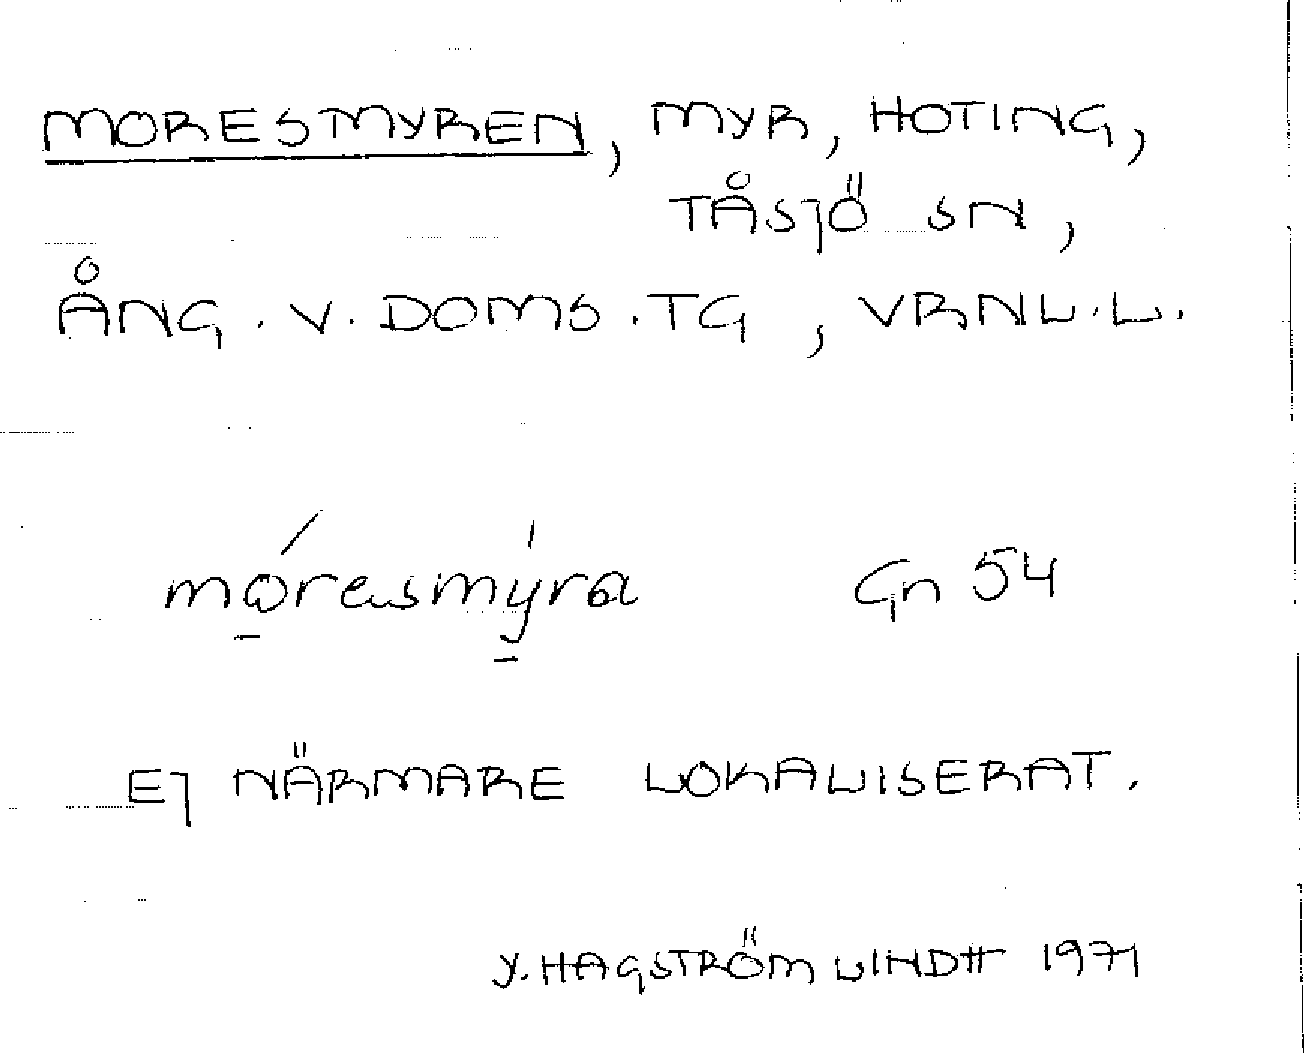 MORESMYREN, MYR, HOTING,
TÅSJÖ SN,
ÅNG. V. DOMS. TG, VRNL. L.
móresmýra Gn 54
EJ NÄRMARE LOKALISERAT.
Y. HAGSTRÖM LINDH 1971